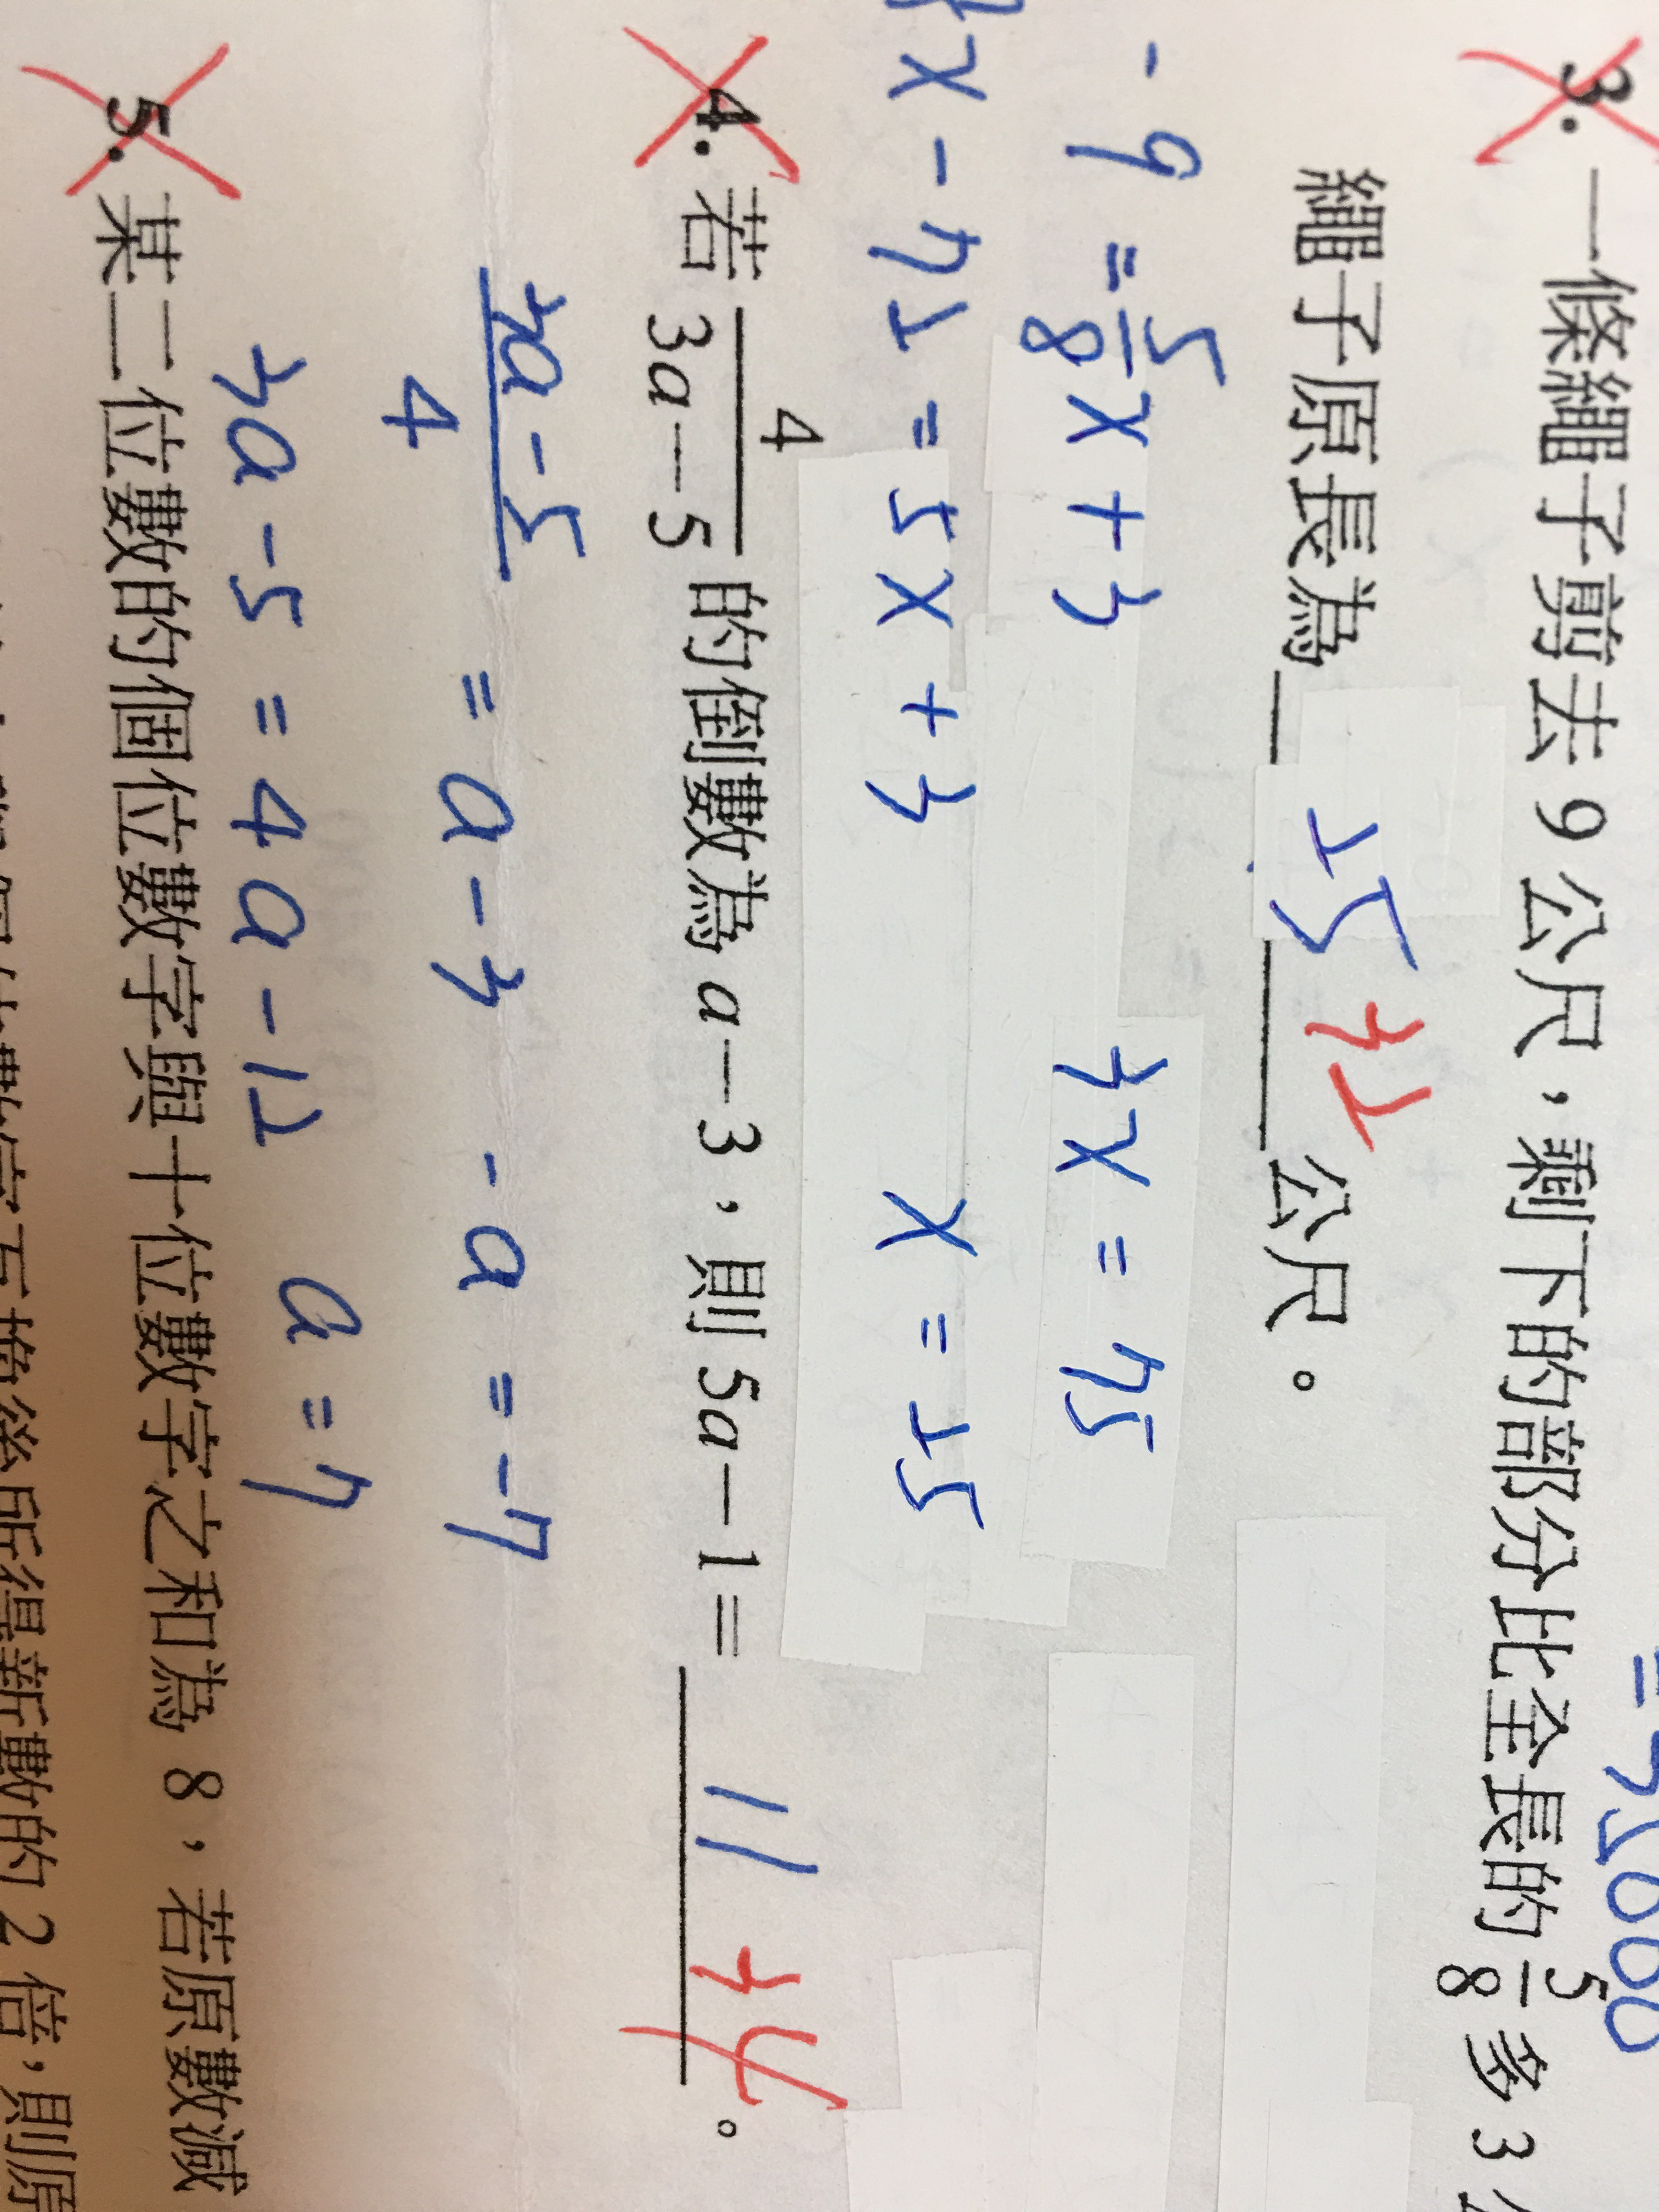 = 35000
3. 一條繩子剪去 9 公尺，剩下的部分比全長的 5/8 多 3
繩子原長為 25 32 公尺。
- 9 = 5/8 x + 3
3x = 75
x - 72 = 5x + 3
x = 25
4. 若 4/(3a－5) 的倒數為 a－3，則 5a－1＝ 11 34 。
(3a-5)/4 = a-3
-a = -7
3a-5 = 4a-12
a = 7
5. 某二位數的個位數字與十位數字之和為 8，若原數減
互換後所得新數的 2 倍，則原